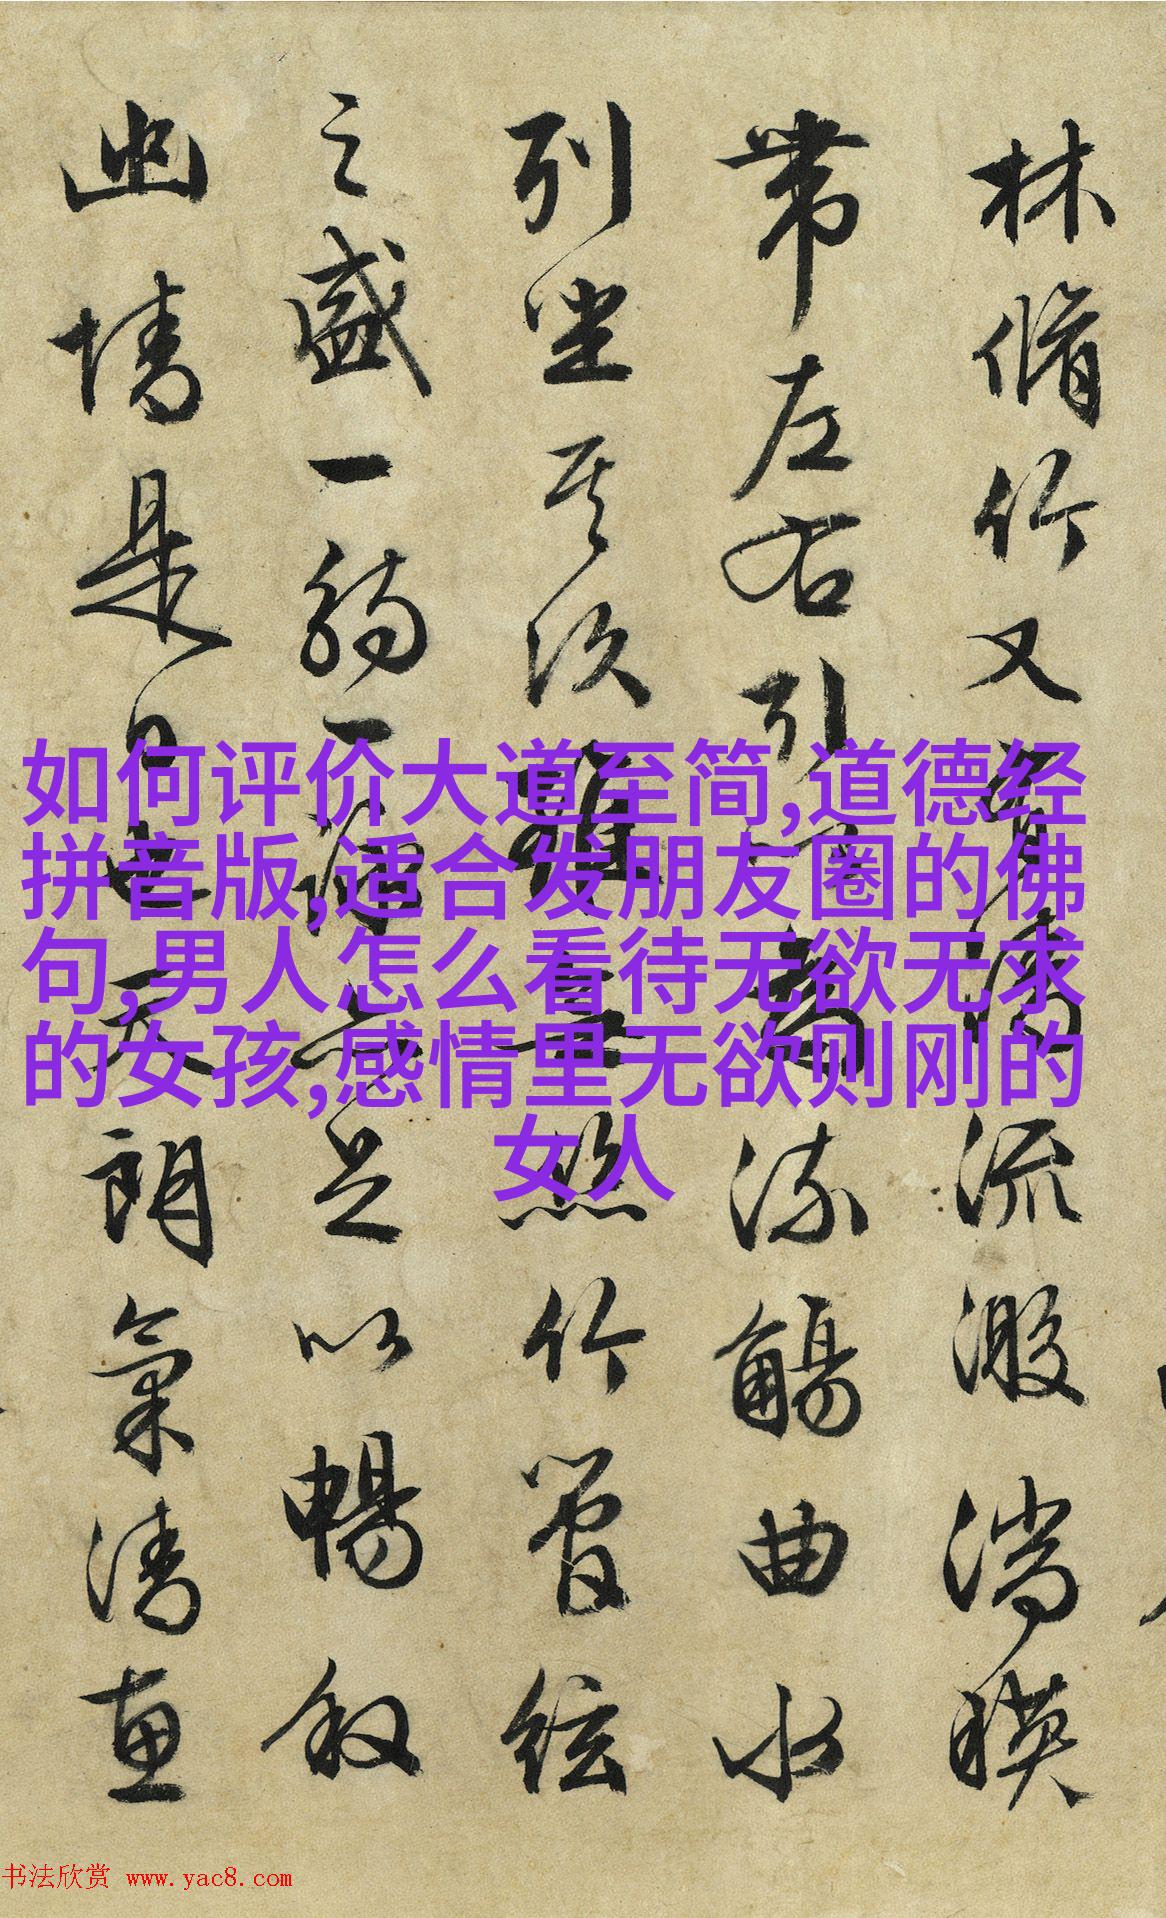 林脩竹又有清流激湍暎
帶左右引以為流觴曲水
列坐其次雖無絲竹管絃
之盛一觴一詠亦足以暢叙
幽情是日也天朗氣清惠
如何评价大道至简,道德经
拼音版,适合发朋友圈的佛
句,男人怎么看待无欲无求
的女孩,感情里无欲则刚的
女人
书法欣赏 www.yac8.com